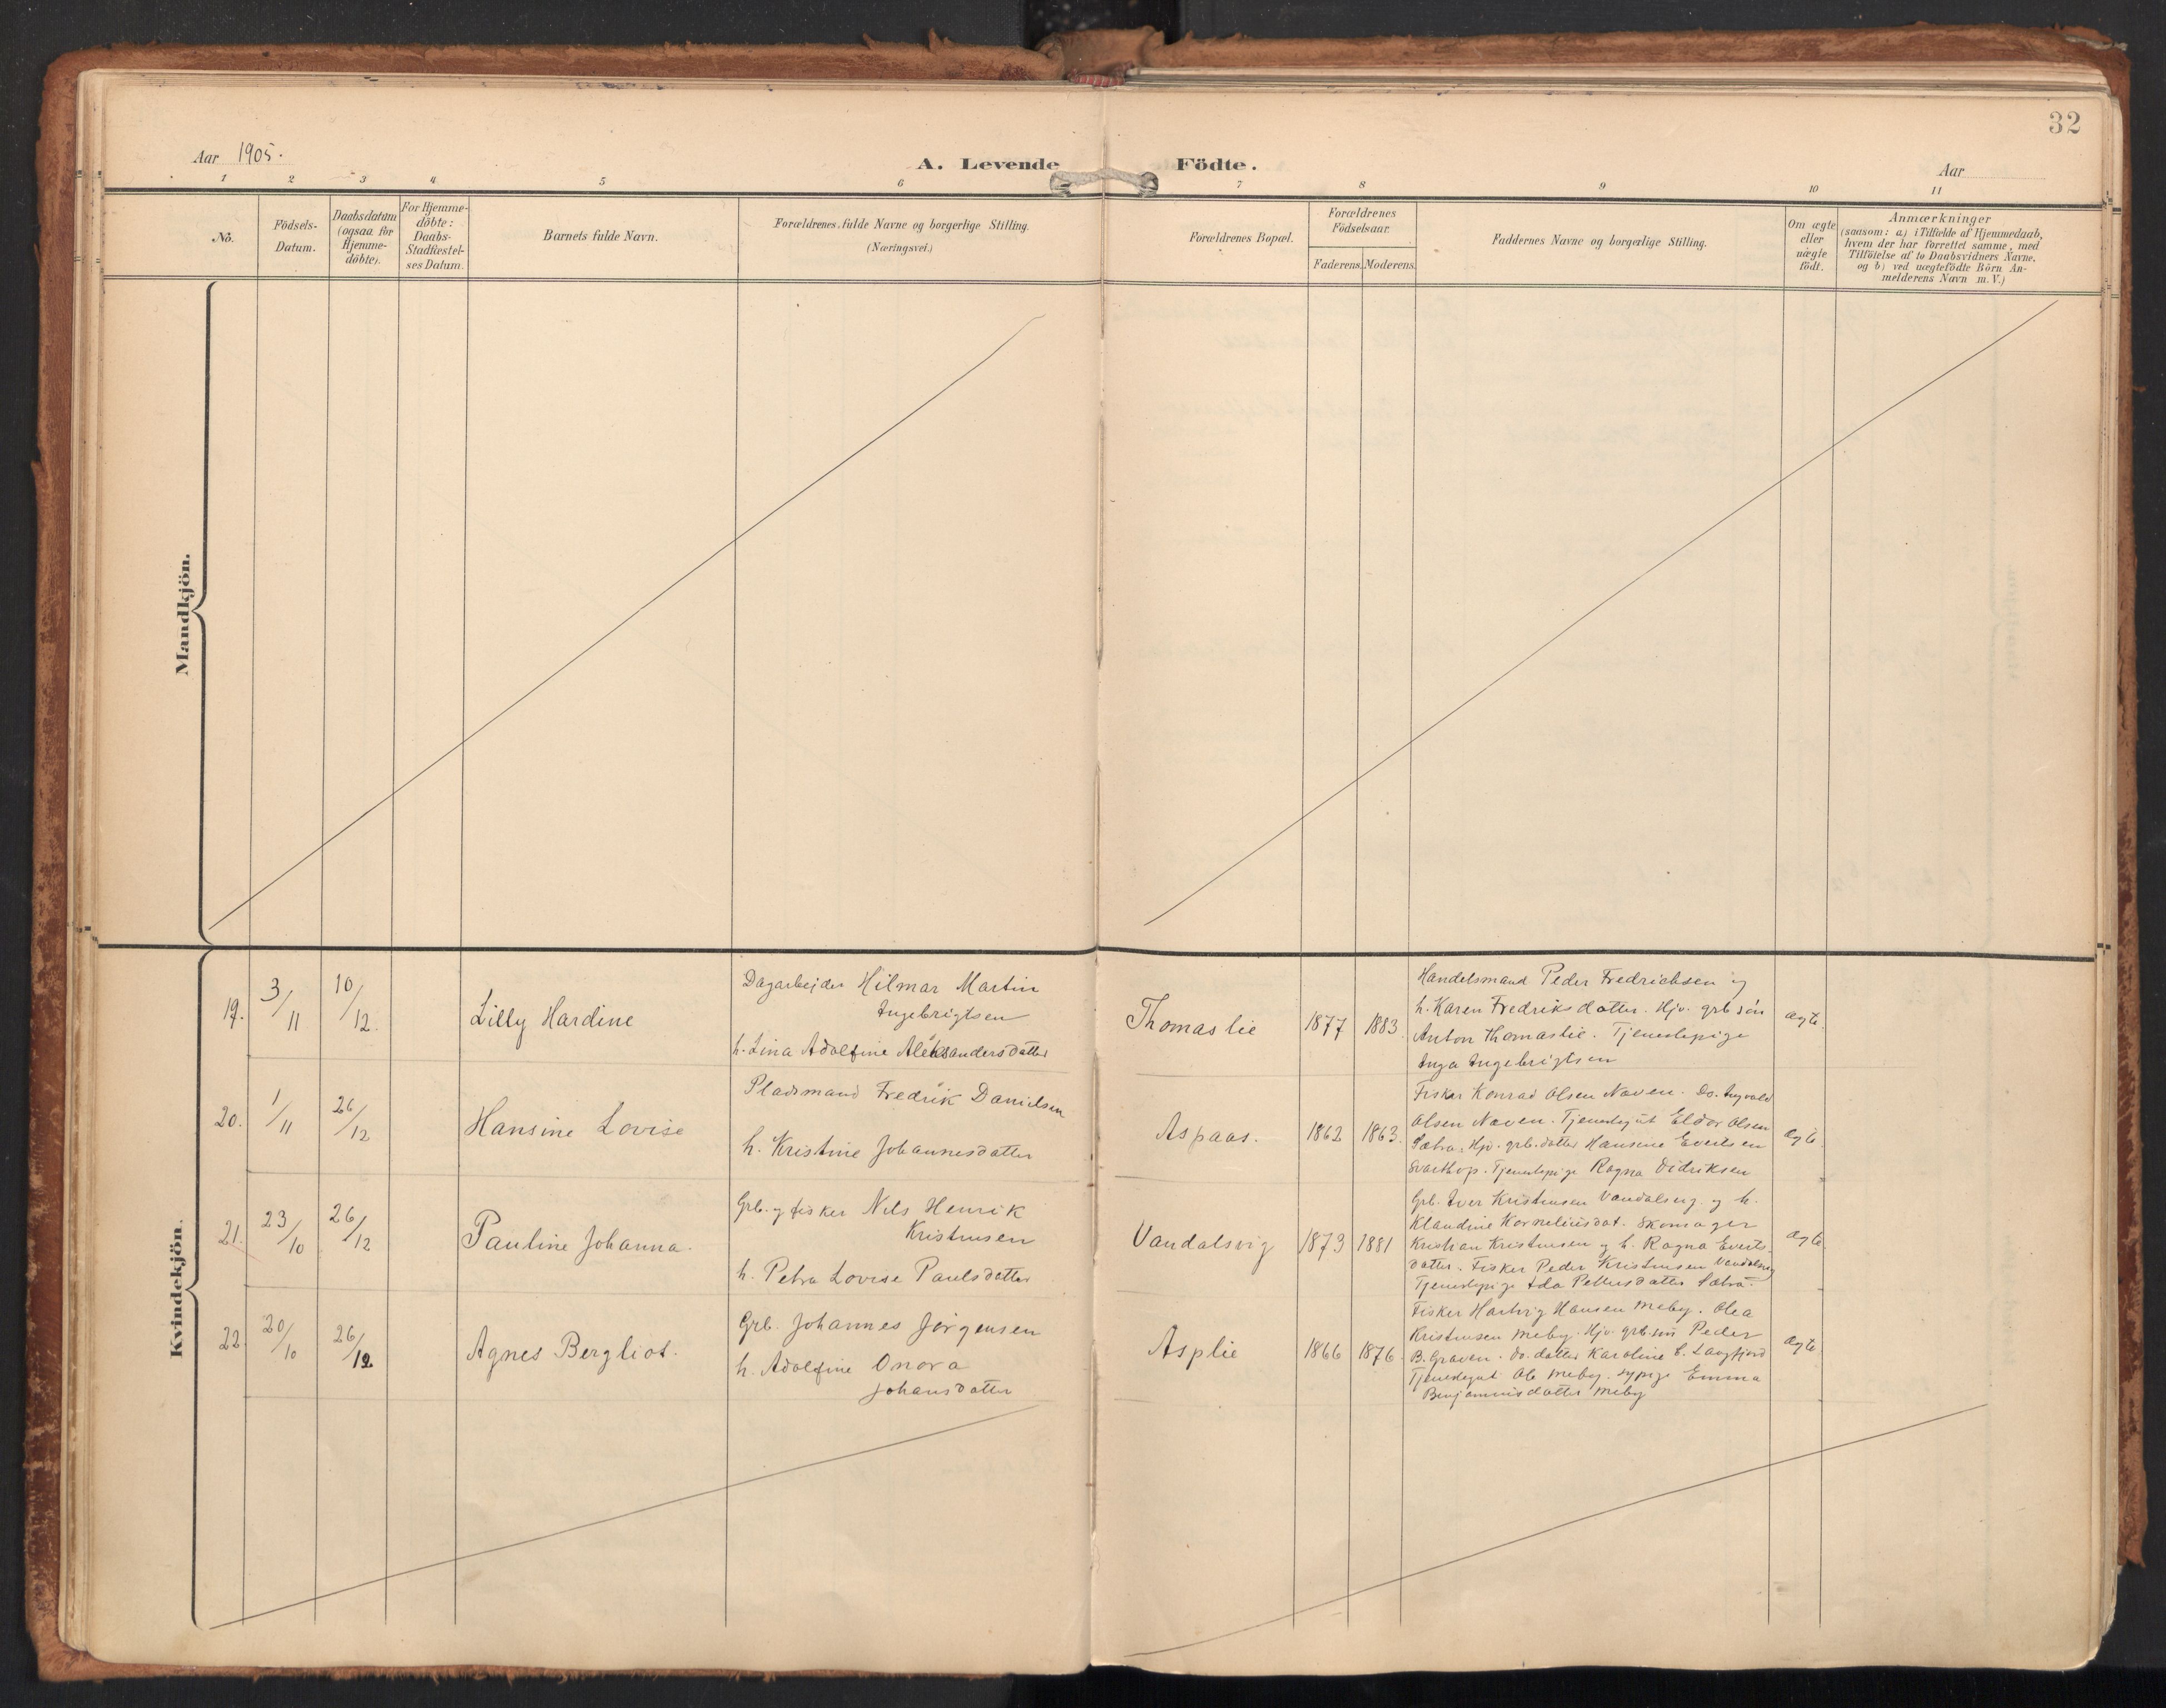 32
Aar 1905.
A. Levende Födte.
Aar
1 2 3 4 5 6 7 8 9 10 11
No.
Födsels-Datum.
Daabsdatum (ogsaa for Hjemme-döbte).
For Hjemme-döbte: Daabs-Stadfæstel-ses Datum.
Barnets fulde Navn.
Forældrenes fulde Navne og borgerlige Stilling.
(Næringsvei.)
Forældrenes Bopæl.
Forældrenes Födselsaar.
Faderens. Moderens.
Faddernes Navne og borgerlige Stilling.
Om ægte eller uægte födt.
Anmærkninger
(saasom: a) i Tilfælde af Hjemmedaab,
hvem der har forrettet samme, med
Tilföielse af to Daabsvidners Navne,
og b) ved uægtefödte Börn An-
melderens Navn m.V.)
Mandkjön.
Kvindekjön.
19. 3/11 10/12. Lilly Hardine
Dagarbejder Hilmar Martin
Ingebrigtsen
h. Lina Adolfine Aleksandersdatter
Thomaslie 1877 1883.
Handelsmand Peder Fredrichsen og
h. Karen Fredriksdatter. Hjv. grb sön
Anton Thomaslie. Tjenestepige
Inga Ingebrigtsen
ægte.
20. 1/11 26/12 Hansine Lovise
Pladsmand Fredrik Danielsen
h. Kristine Johannesdatter
Aspaas. 1862 1863.
Fisker Konrad Olsen Naven. Do. Ingvald
Olsen Naven. Tjenestegut Eldor Olsen
Sætra. Hjv. grb. datter Hansine Evertsen
Svarthop. Tjenestepige Ragna Didriksen
ægte
21. 23/10 26/12 Pauline Johanna.
Grb. og fisker Nils Henrik
Kristensen
h. Petra Lovise Paulsdatter
Vandalsvig 1873 1881
Grb. Iver Kristensen Vandalsvig. og h.
Klaudine Korneliusdat. Skomager
Kristian Kristensen og h. Ragna Everts-
datter. Fisker Peder Kristensen Vandalsvig
Tjenestepige Ida Pettersdatter Sætra.
ægte.
22. 20/10 26/12 Agnes Bergliot.
Grb. Johannes Jörgensen
h. Adolfine Onora
Johansdatter
Asplie 1866 1876.
Fisker Hartvig Hansen Meby. Olea
Kristensen Meby. Hjv. grb. sön Peder
B. Graven. do. datter Karoline E. Langfjord
Tjenestegut Ole Meby. Sypige Emma
Benjaminsdatter Meby
ægte.